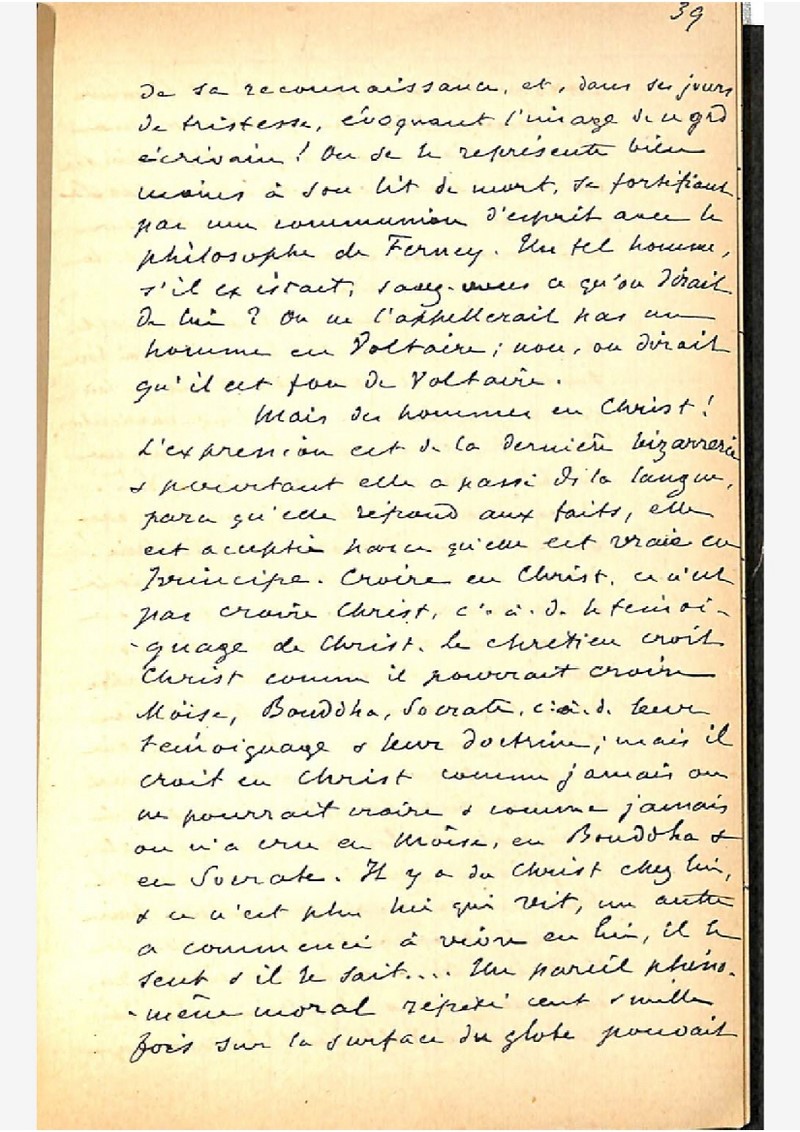 39
de sa reconnaissance, et, dans ses jours
de tristesse, évoquant l'image de ce grd
écrivain ! On se le représente bien
moins à son lit de mort, se fortifiant
par une communion d'esprit avec le
philosophe de Ferney. Un tel homme,
s'il existait, savez-vous ce qu'on dirait
de lui ? On ne l'appellerait pas un
homme en Voltaire ; non, on dirait
qu'il est fou de Voltaire.
Mais des hommes en Christ !
L'expression est de la dernière bizarrerie
& pourtant elle a passé ds la langue,
parce qu'elle répond aux faits, elle
est acceptée parce qu'elle est vraie en
principe. Croire en Christ, ce n'est
pas croire Christ, c'.à.d. le témoi-
-gnage de Christ. Le chrétien croit
Christ comme il pourrait croire
Moïse, Bouddha, Socrate, c.à.d. leur
témoignage & leur doctrine ; mais il
croit en Christ comme jamais on
ne pourrait croire & comme jamais
on n'a cru en Moïse, en Bouddha &
en Socrate. Il y a du Christ chez lui,
& ce n'est plus lui qui vit, un autre
a commencé à vivre en lui, il le
sent & il le sait.... Un pareil phéno-
-mène moral répété cent & mille
fois sur la surface du globe pouvait